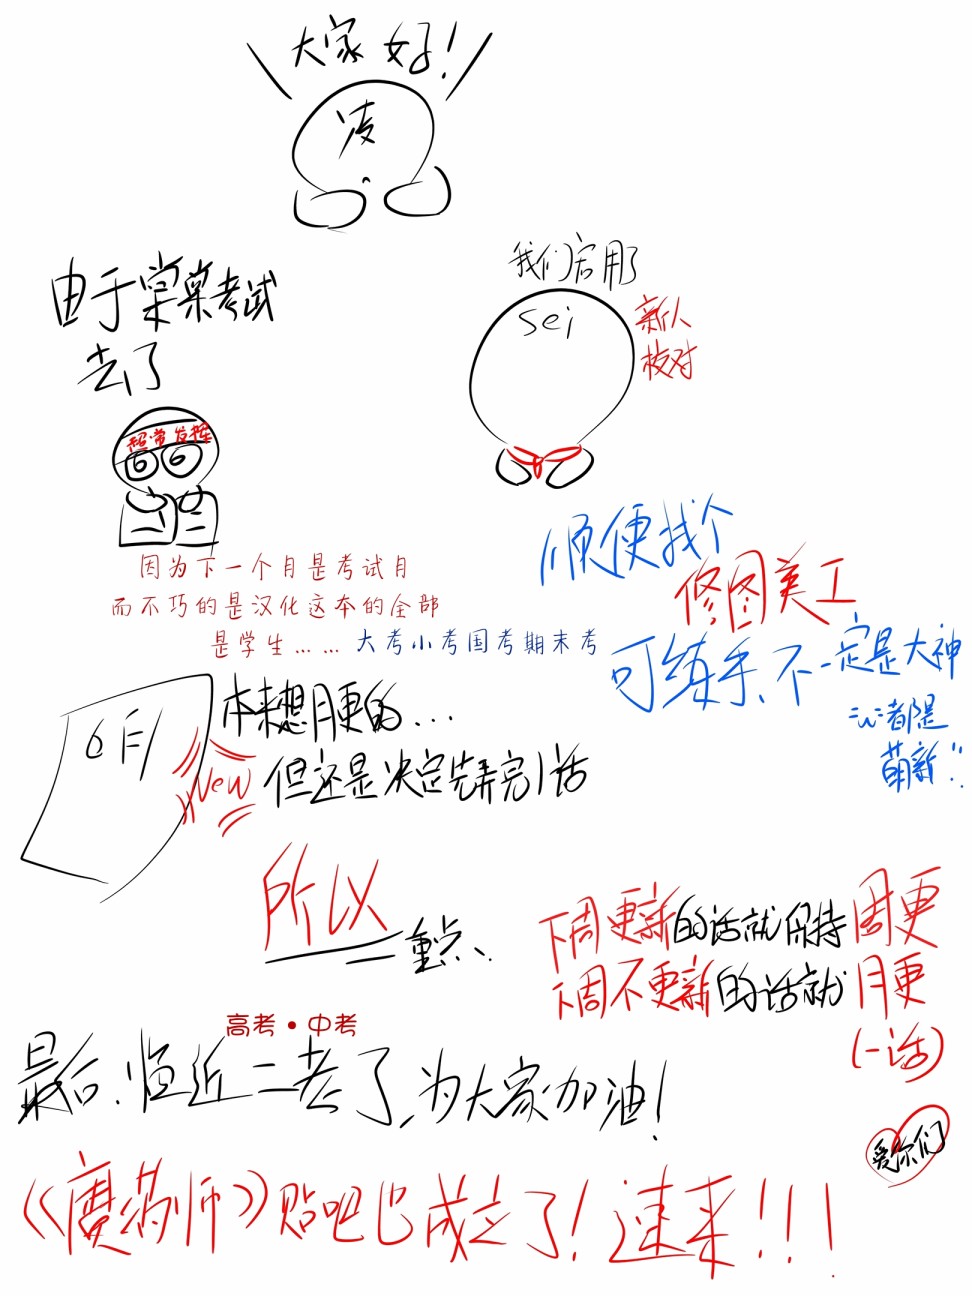 大家好!
凌
由于棠菓考试
去了
超常发挥
我们启用了
sei
新人
校对
因为下一个月是考试月
而不巧的是汉化这本的全部
是学生……大考小考国考期末考
顺便找个
修图美工
可练手、不一定是大神
"w"都是
萌新!!
6月
New
本来想月更的...
但还是决定先弄完1话
所以
重点、
下周更新的话就保持周更
下周不更新的话就月更
(一话)
高考·中考
最后、临近二考了、为大家加油!
爱你们
《魔药师》贴吧已成立了!速来!!!